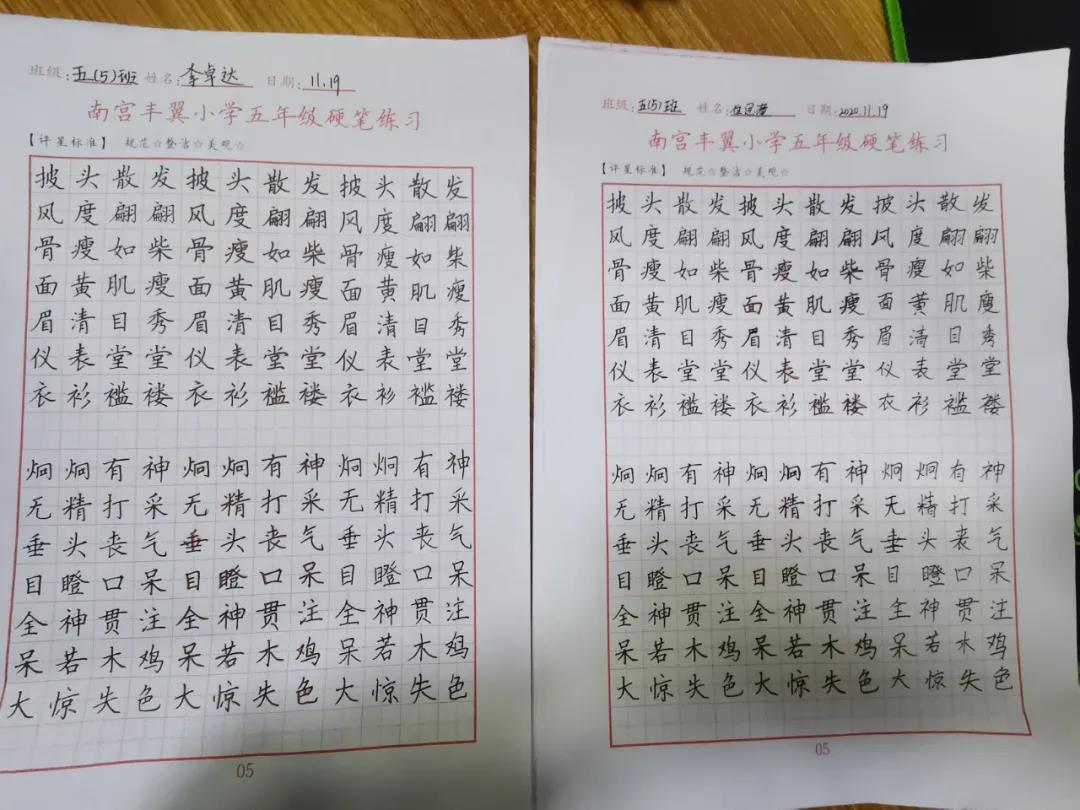 班级:五(5)班 姓名:李卓达 日期:11.19
南宫丰翼小学五年级硬笔练习
【评星标准】 规范☆整洁☆美观☆
披头散发披头散发披头散发
风度翩翩风度翩翩风度翩翩
骨瘦如柴骨瘦如柴骨瘦如柴
面黄肌瘦面黄肌瘦面黄肌瘦
眉清目秀眉清目秀眉清目秀
仪表堂堂仪表堂堂仪表堂堂
衣衫褴褛衣衫褴褛衣衫褴褛
炯炯有神炯炯有神炯炯有神
无精打采无精打采无精打采
垂头丧气垂头丧气垂头丧气
目瞪口呆目瞪口呆目瞪口呆
全神贯注全神贯注全神贯注
呆若木鸡呆若木鸡呆若木鸡
大惊失色大惊失色大惊失色
05
班级:五(5)班 姓名: 日期:2020.11.19
南宫丰翼小学五年级硬笔练习
【评星标准】 规范☆整洁☆美观☆
披头散发披头散发披头散发
风度翩翩风度翩翩风度翩翩
骨瘦如柴骨瘦如柴骨瘦如柴
面黄肌瘦面黄肌瘦面黄肌瘦
眉清目秀眉清目秀眉清目秀
仪表堂堂仪表堂堂仪表堂堂
衣衫褴褛衣衫褴褛衣衫褴褛
炯炯有神炯炯有神炯炯有神
无精打采无精打采无精打采
垂头丧气垂头丧气垂头丧气
目瞪口呆目瞪口呆目瞪口呆
全神贯注全神贯注全神贯注
呆若木鸡呆若木鸡呆若木鸡
大惊失色大惊失色大惊失色
05